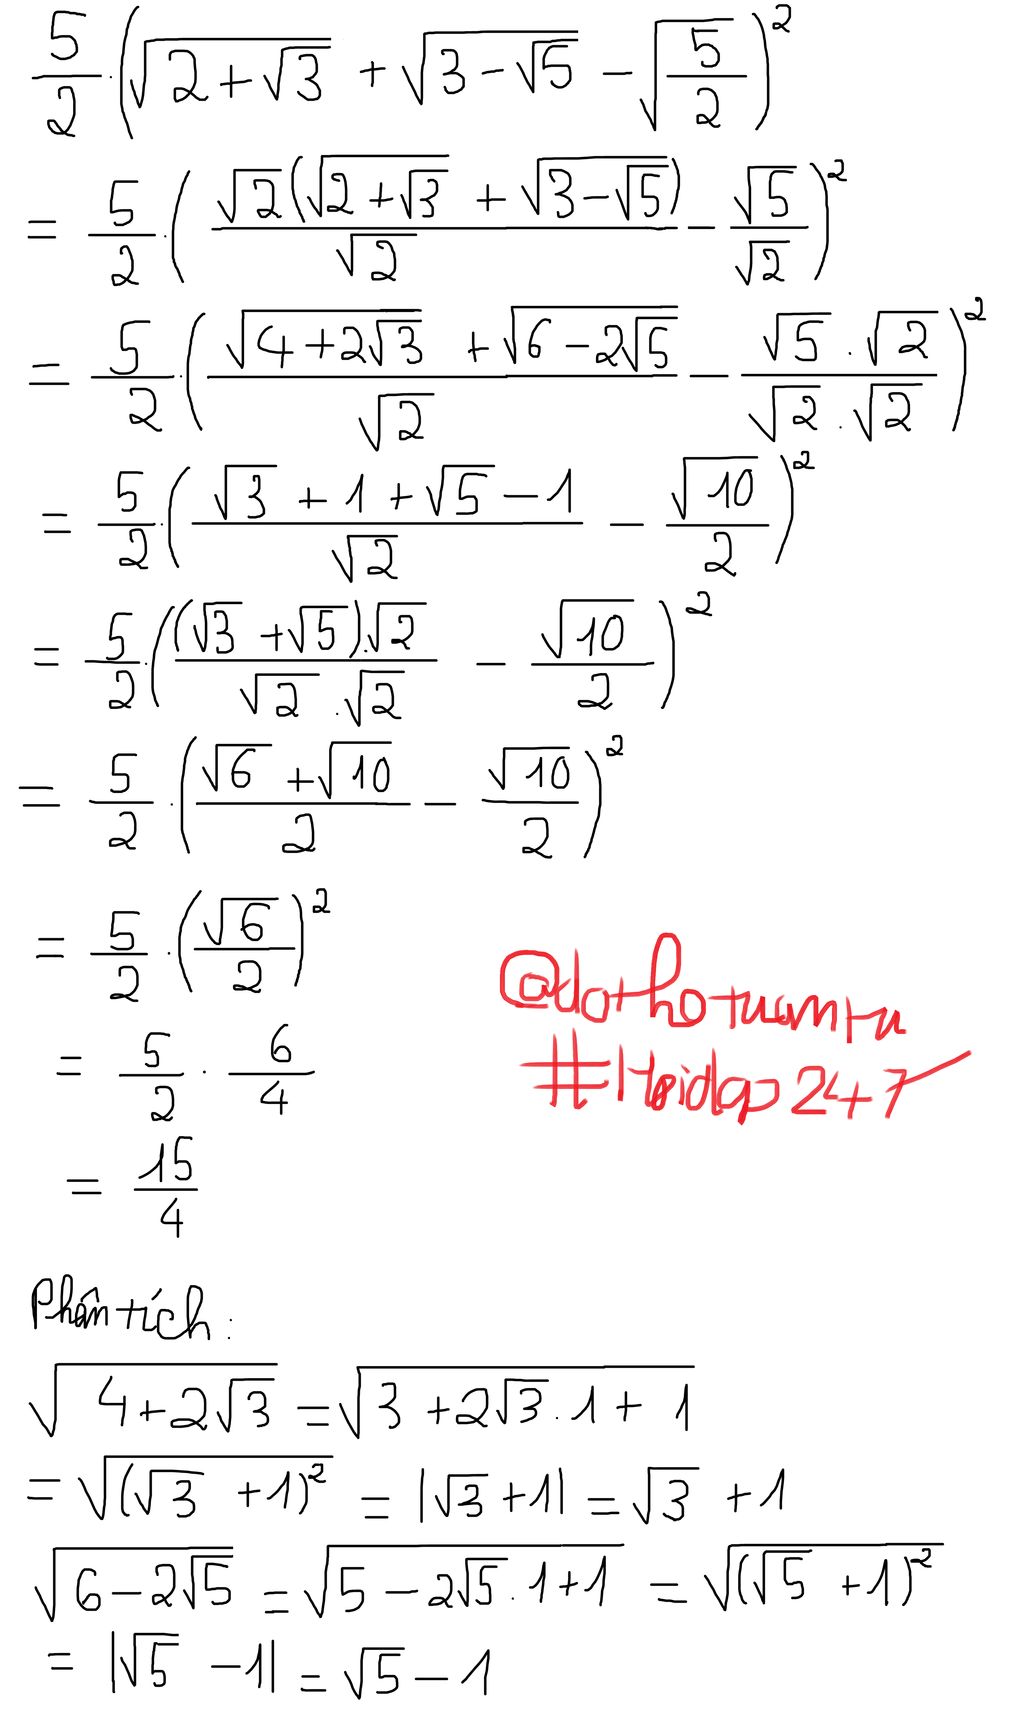 5/2 · (√(2+√3) + √(3-√5) - √(5/2))²
= 5/2 · (√2(√(2+√3) + √(3-√5))/√2 - √5/√2)²
= 5/2 · ((√(4+2√3) + √(6-2√5))/√2 - (√5 . √2)/(√2 . √2))²
= 5/2 · ((√3 + 1 + √5 - 1)/√2 - √10/2)²
= 5/2 · (((√3 + √5).√2)/(√2 . √2) - √10/2)²
= 5/2 · ((√6 + √10)/2 - √10/2)²
= 5/2 · (√6/2)²
@dothotuantu
#Hoidap247
= 5/2 · 6/4
= 15/4
Phân tích:
√(4+2√3) = √(3+2√3.1+1)
= √((√3+1)²) = |√3+1| = √3+1
√(6-2√5) = √(5-2√5.1+1) = √((√5+1)²)
= |√5-1| = √5-1